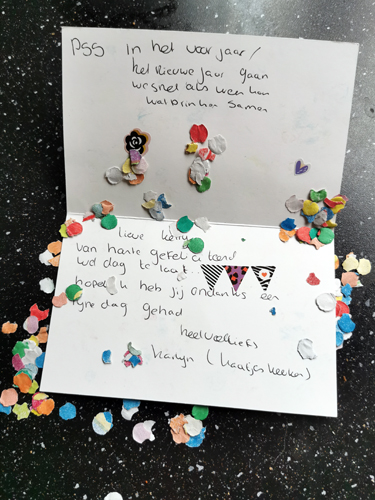 PSS In het voorjaar /
het nieuwe jaar gaan
we snel als weer kan
wat drinken samen
Lieve Kelly
van harte gefeliciteerd
wel dag te laat
hopelijk heb jij ondanks een
fijne dag gehad
heel veel liefs
Karlijn (kaartjes